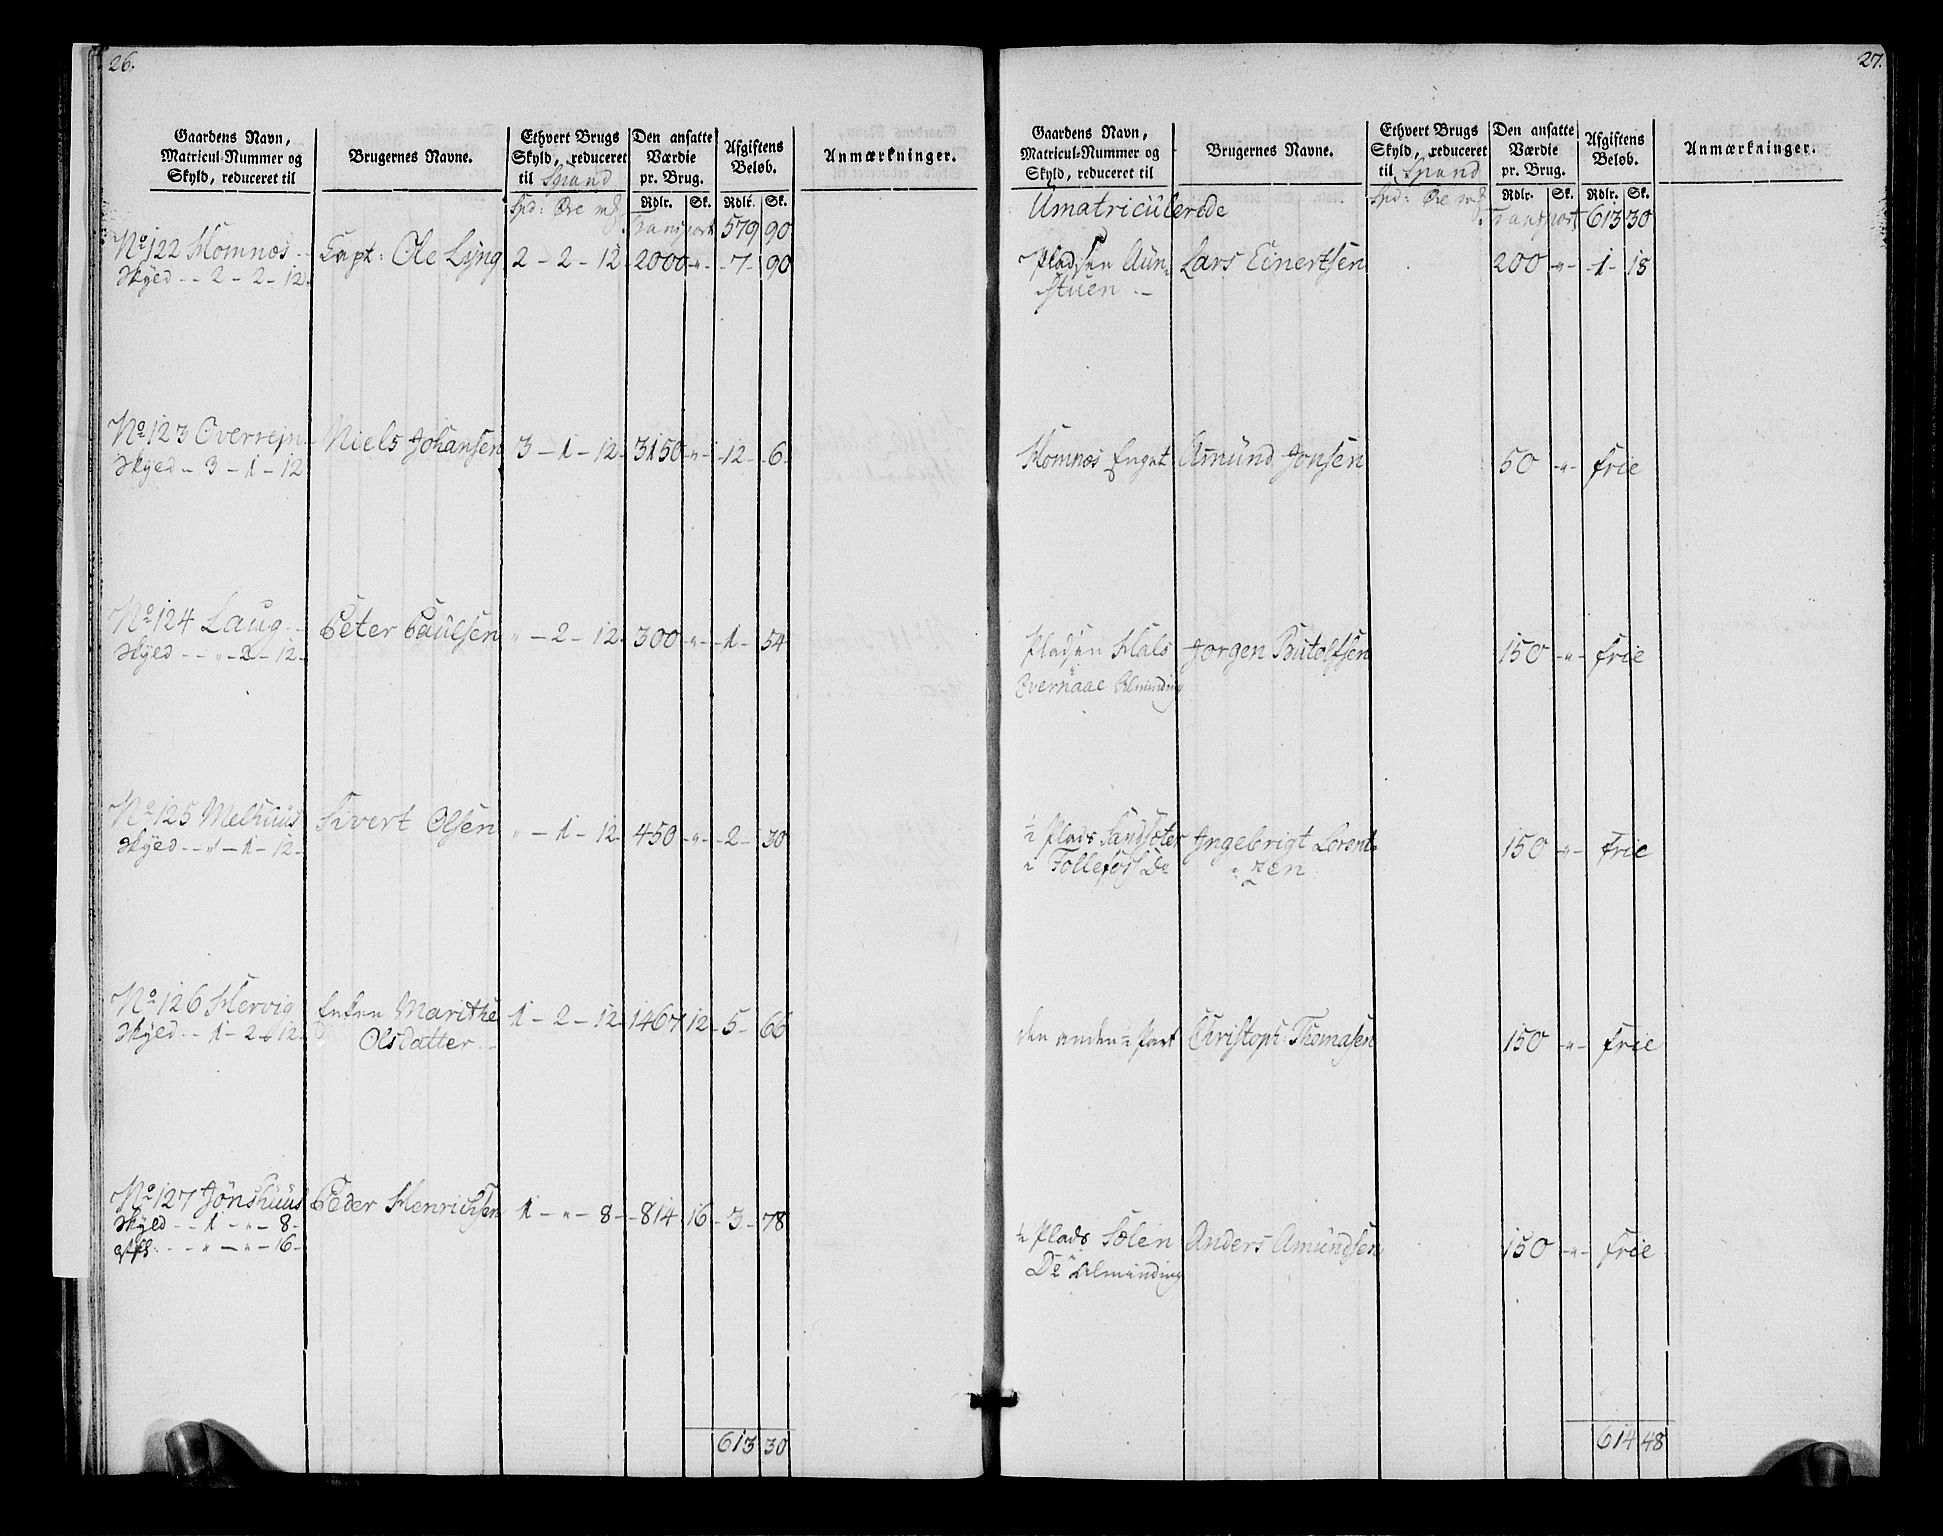 26.
Gaardens Navn, Matricul-Nummer og Skyld, reduceret til
Brugernes Navne.
Ethvert Brugs Skyld, reduceret til Spand
Den ansatte Værdie pr. Brug.
Afgiftens Beløb.
Anmærkninger.
Spd: Øre mȝ Rdlr. Sk. Rdlr. Sk.
Transport 579 90
No 122 Homnæs Capt: Ole Lyng 2 - 2 - 12 2000 „ 7 90
Skyld - 2 - 2 - 12
No 123 Overrejn Niels Johansen 3 - 1 - 12 3150 „ 12 6
Skyld - 3 - 1 - 12
No 124 Laug Peter Paulsen „ - 2 - 12 300 „ 1 54
Skyld - „ - 2 - 12
No 125 Melhuus Sivert Olsen „ - 1 - 12 450 „ 2 30
Skyld - „ - 1 - 12
No 126 Hervig Enken Marithe 1 - 2 - 12 1467 12 5 66
Skyld - 1 - 2 - 12 Olsdatter
No 127 Jönshuus Peder Henrichsen 1 - „ - 8 814 16 3 78
Skyld - 1 - „ - 8
„ - „ - 16
613 30
27.
Gaardens Navn, Matricul-Nummer og Skyld, reduceret til
Brugernes Navne.
Ethvert Brugs Skyld, reduceret til Spand
Den ansatte Værdie pr. Brug.
Afgiftens Beløb.
Anmærkninger.
Spd: Øre mȝ Rdlr. Sk. Rdlr. Sk.
Umatriculerede Transport 613 30
Pladsen Aun- Lars Einertsen 200 „ 1 18
stuen
Homnæs Enget Amund Jonsen 50 „ frie
Pladsen Hals Jørgen Butolfsen 150 „ frie
Overnaae Alminding
½ Plads Sandsæter Ingebrigt Lorent- 150 „ frie
i Follefos Do zen
den anden ½ Part Christoph: Thomasen 150 „ frie
½ Plads Sælen Anders Amundsen 150 „ frie
Do Alminding
614 48